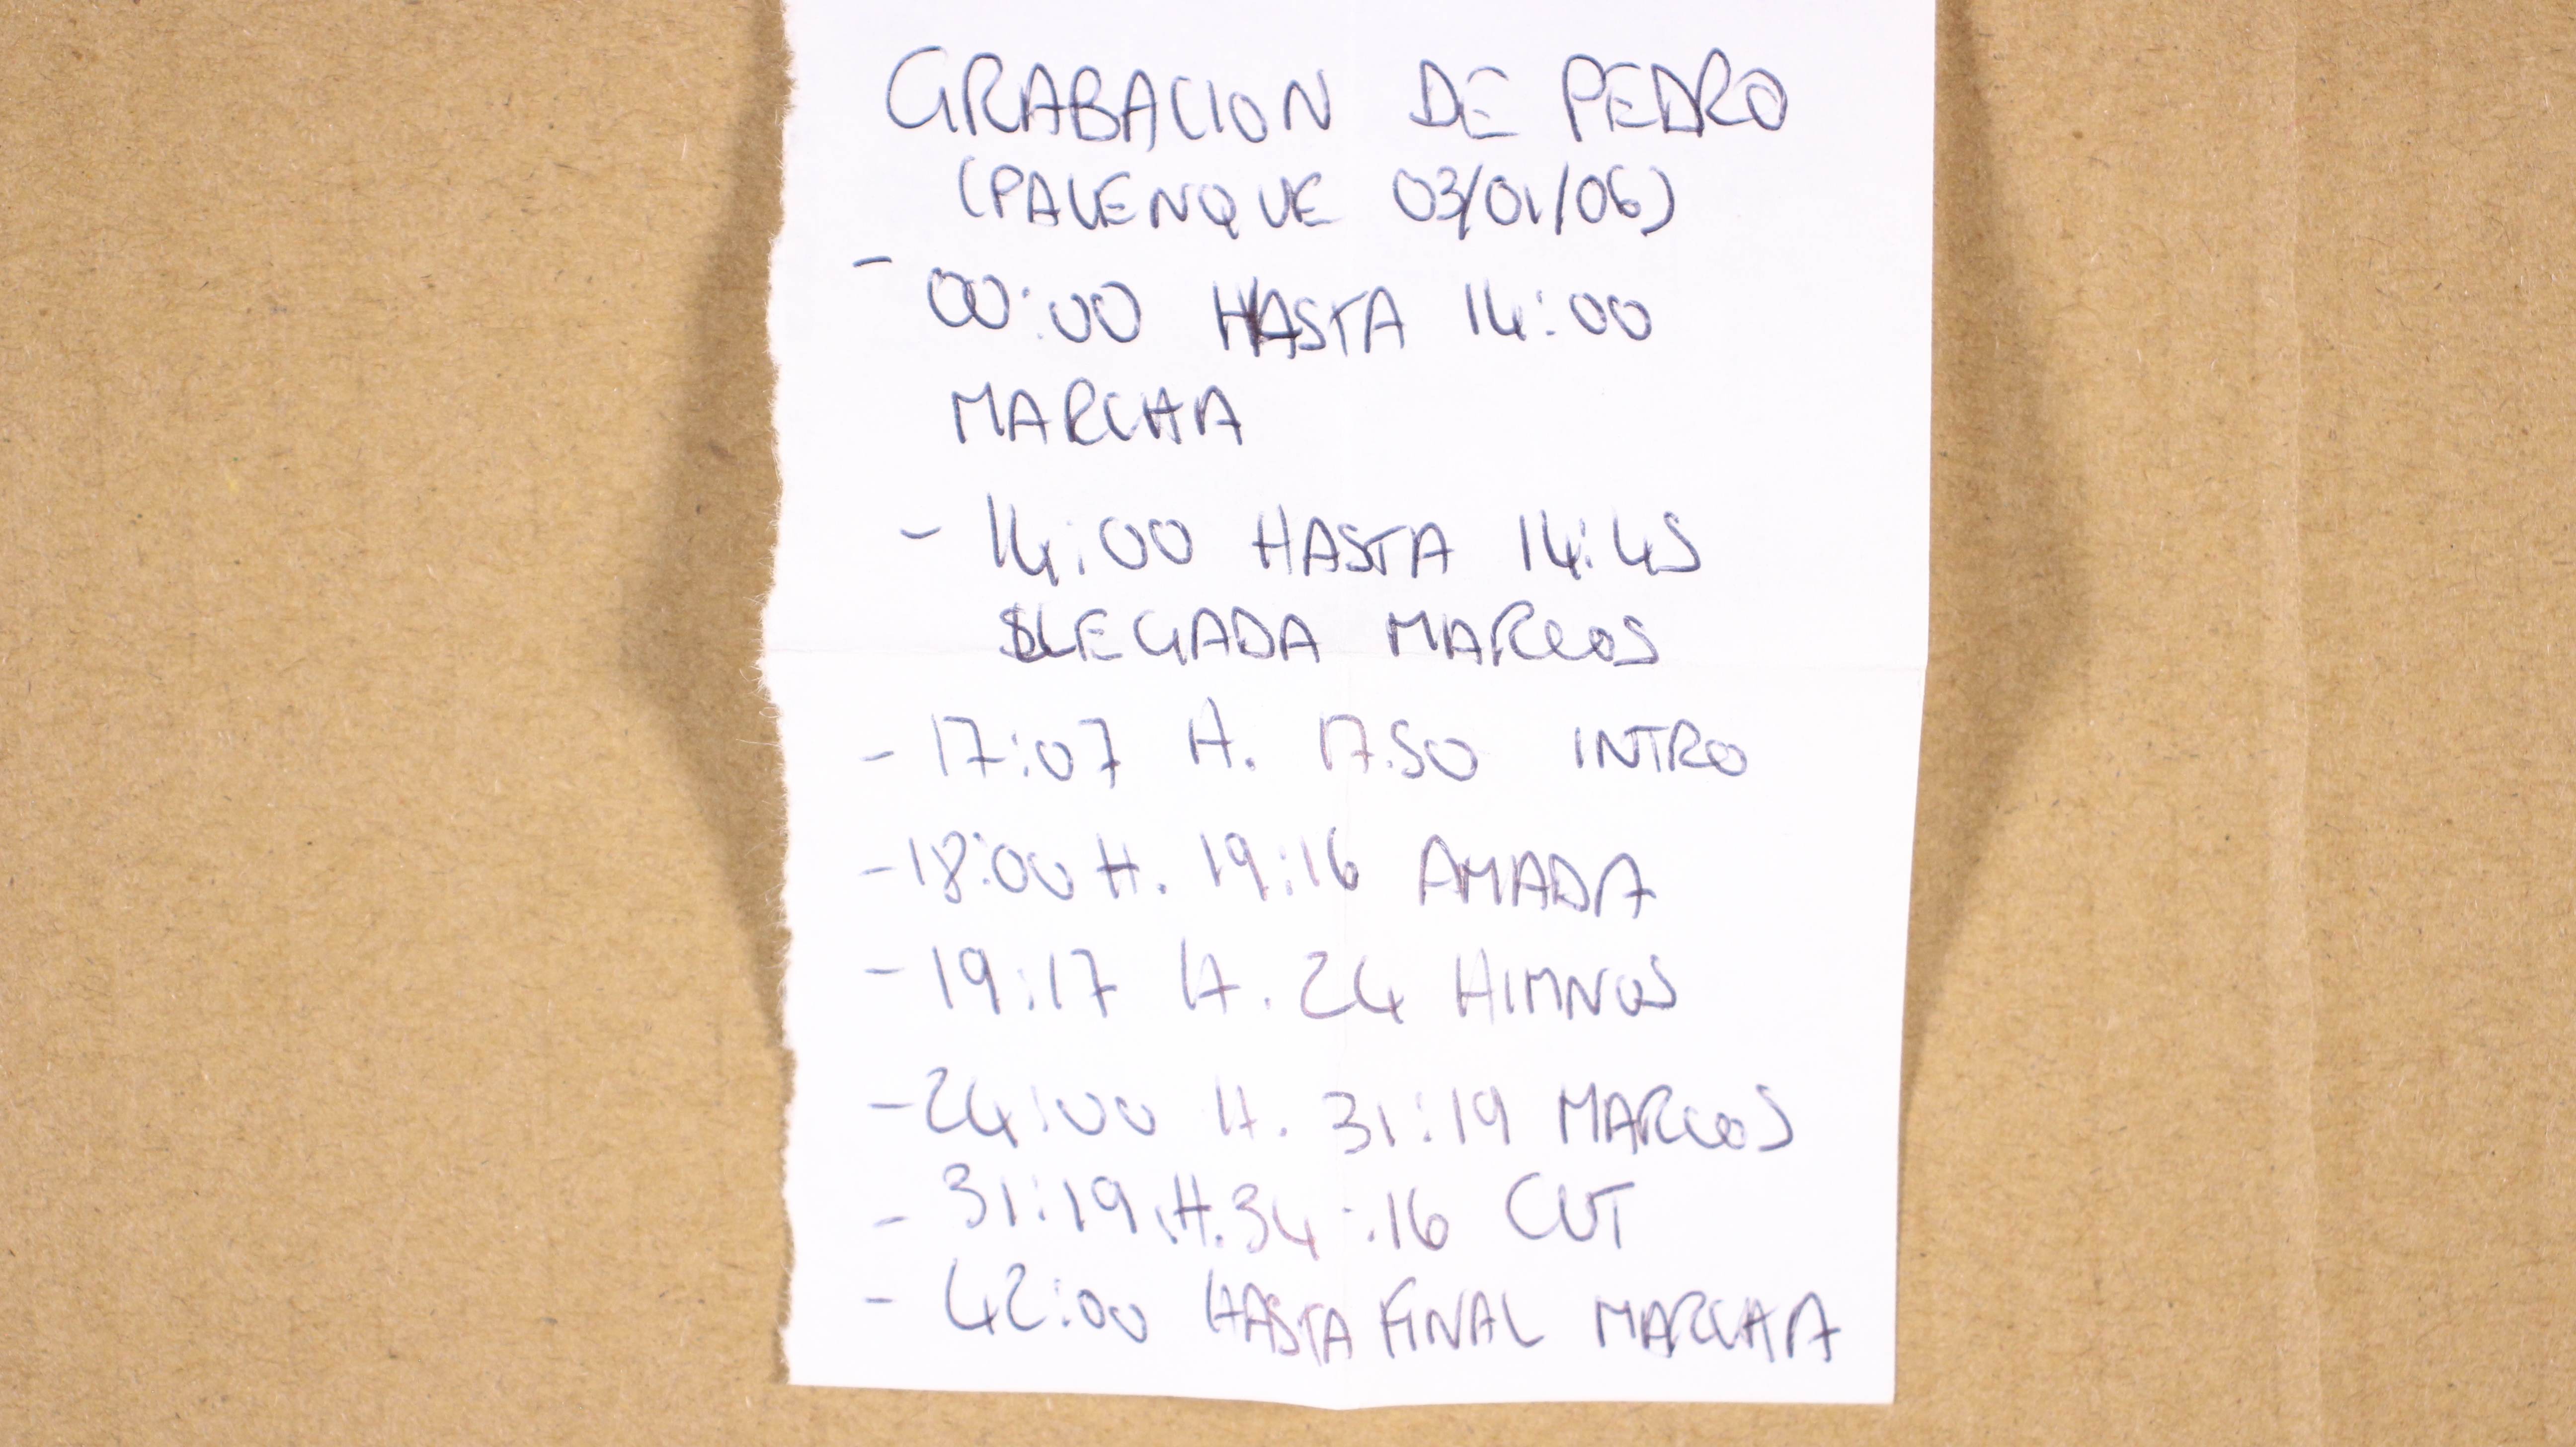 GRABACION DE PEDRO
(PALENQUE 03/01/06)
- 00:00 HASTA 14:00
MARCHA
- 14:00 HASTA 14:45
LLEGADA MARCOS
- 17:07 H. 17:50 INTRO
- 18:00 H. 19:16 AMADA
- 19:17 H. 24 HIMNOS
- 24:00 H. 31:19 MARCOS
- 31:19 H. 34:16 CUT
- 42:00 HASTA FINAL MARCHA